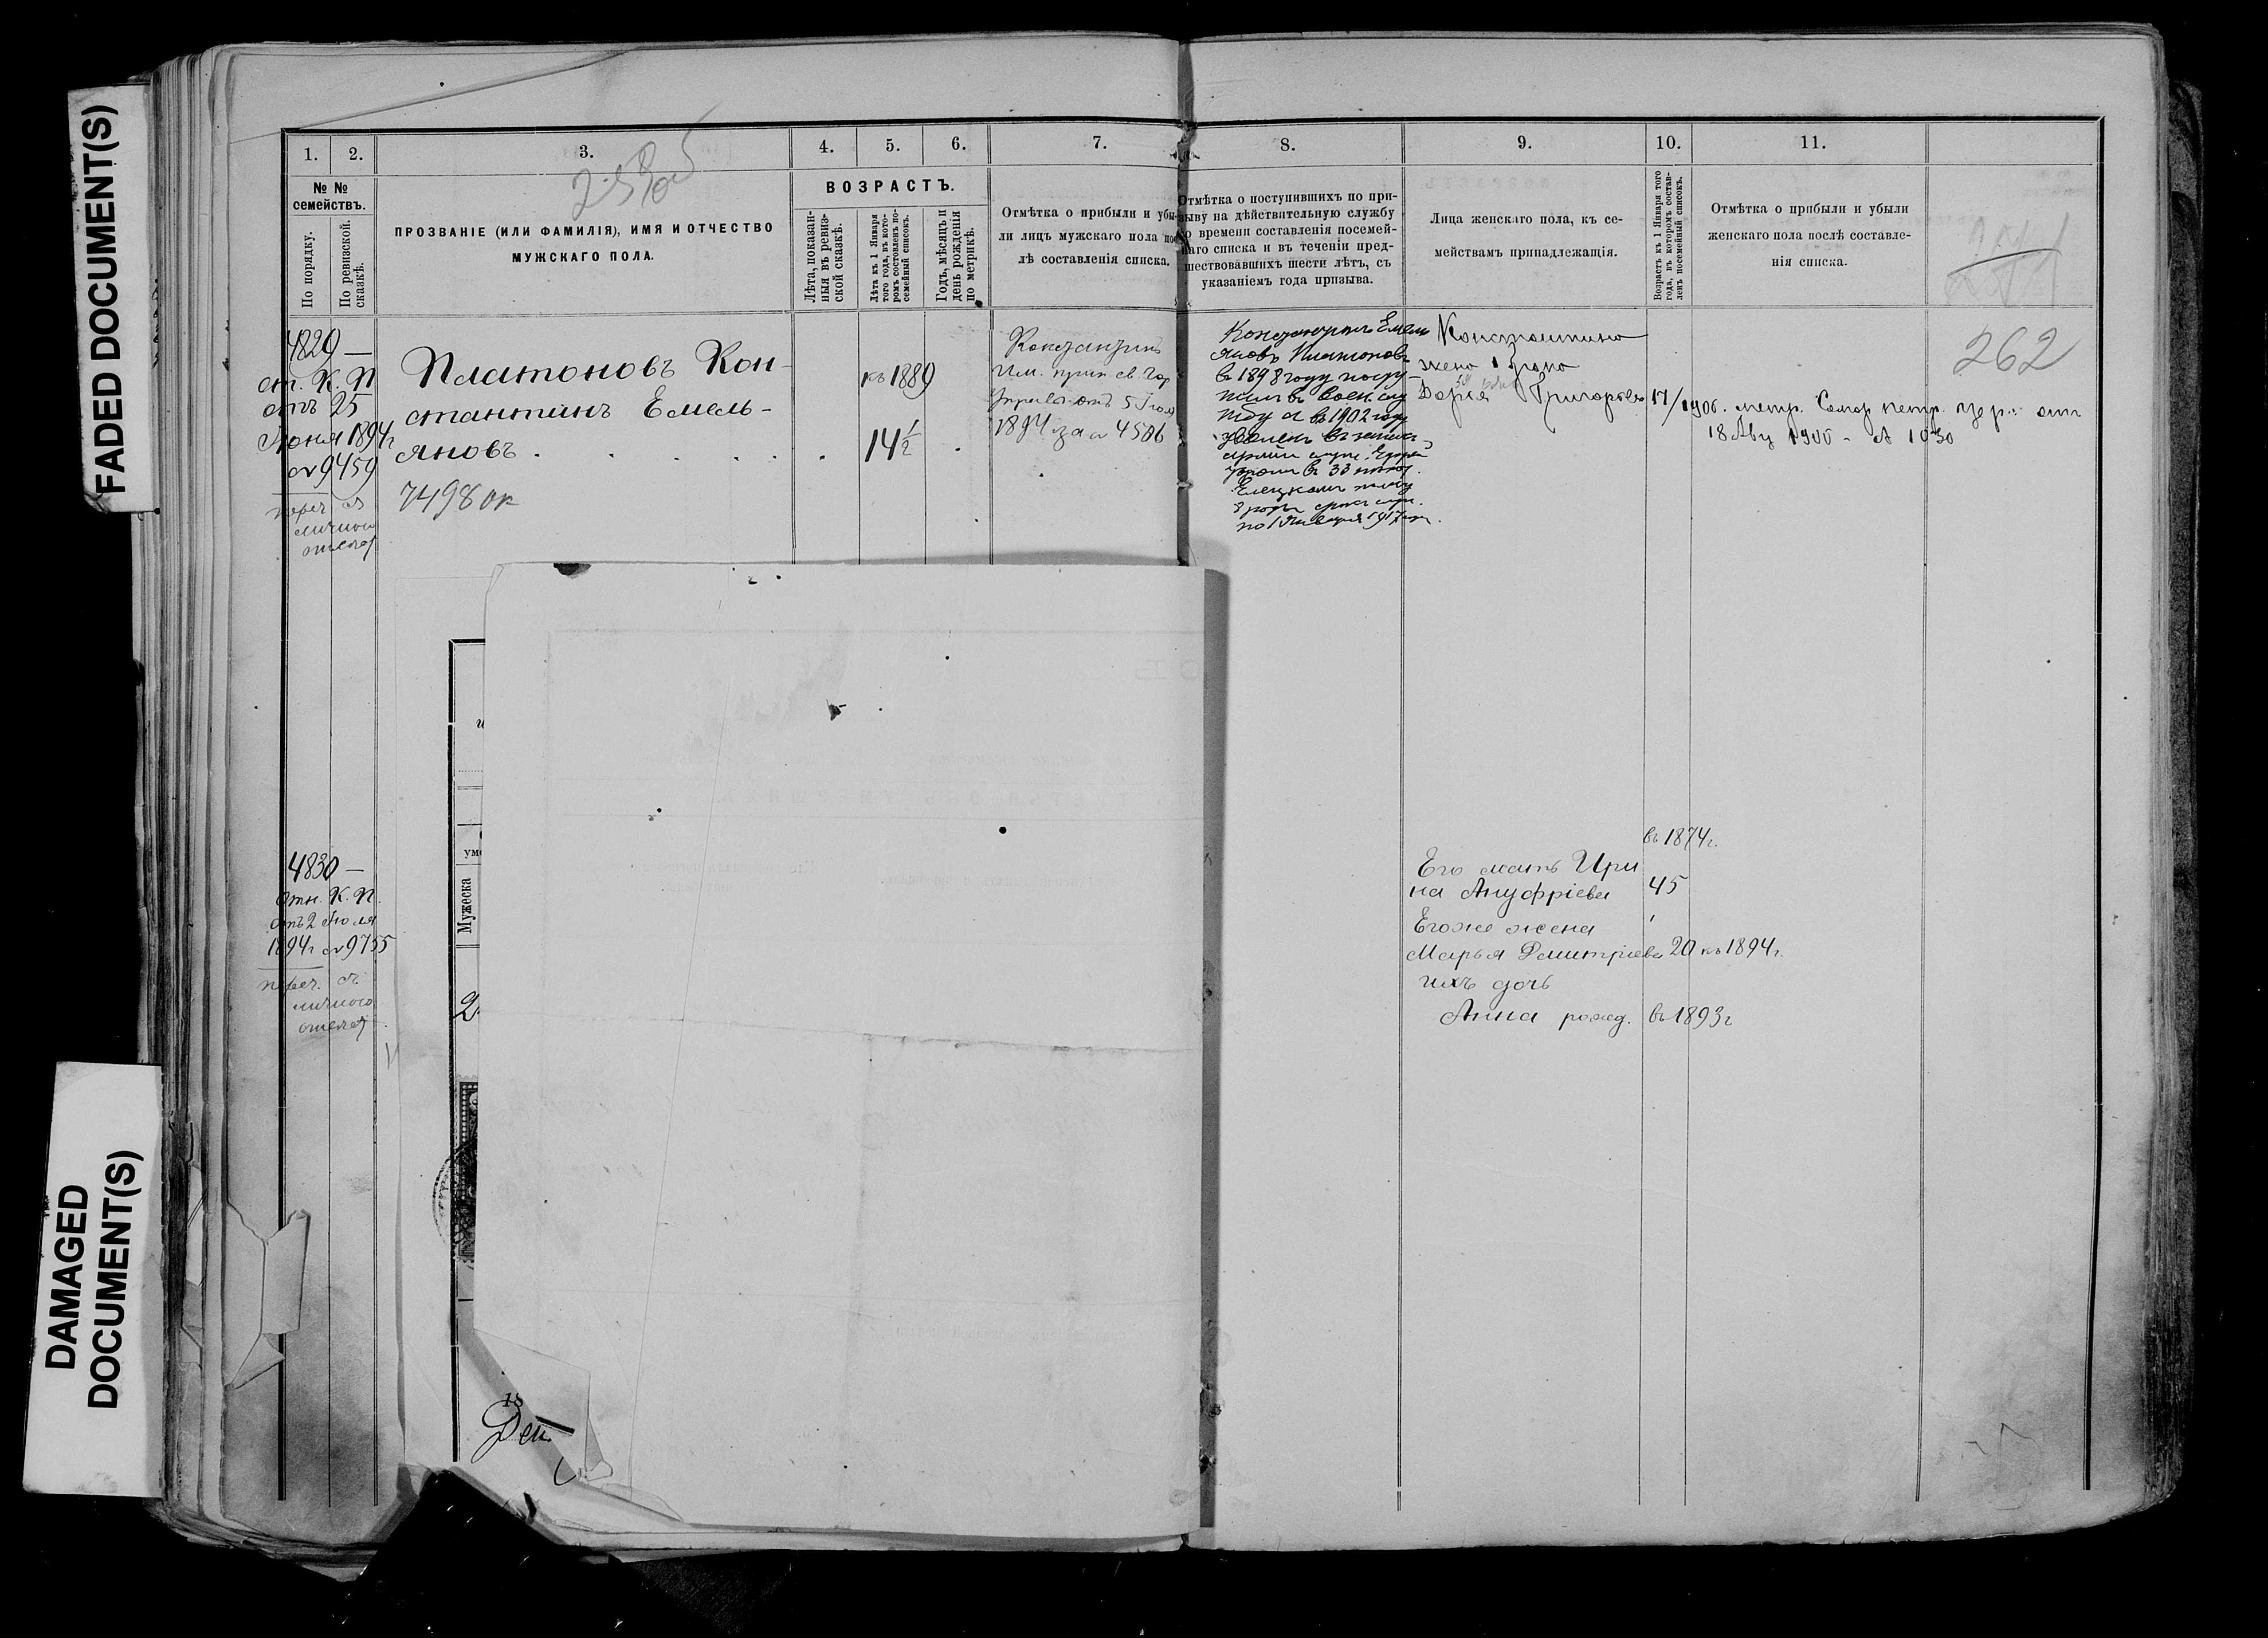 FAADED DOCUMENT(S)
DAMAGED
DOCUMENT(S)
1.
2.
3.
4.
5.
6.
7.
8.
9.
10.
11.
№ №
семействъ.
По порядку.
По ревизской
сказкѣ.
ПРОЗВАНІЕ (ИЛИ ФАМИЛІЯ), ИМЯ И ОТЧЕСТВО
МУЖСКАГО ПОЛА.
ВОЗРАСТЪ.
Лѣта, показан-
ныя въ ревиз-
ской сказкѣ.
Лѣта къ 1 Января
того года, въ кото-
ромъ состоленъ по-
семейный списокъ.
Годъ, мѣсяцъ и
день рожденія
по метрикѣ.
Отмѣтка о прибыли и убы-
ли лицъ мужскаго пола
лѣ составленія списка.
Отмѣтка о поступившихъ по при-
зыву на дѣйствительную службу
о времени составленія посемей-
наго списка и въ теченіи пред-
шествовавшихъ шести лѣтъ, съ
указаніемъ года призыва.
Лица женскаго пола, къ се-
мействамъ принадлежащія.
Возрастъ къ 1 Января того
года, въ которомъ состав-
ленъ посемейный списокъ.
Отмѣтка о прибыли и убыли
женскаго пола послѣ составле-
нія списка.
262
4829 —
от. К. П
отъ 25
Іюня 1894г
№ 9459
переч. съ
личного
Платоновъ Кон-
стантинъ Емель-
яновъ
7498 ок
къ 1889
14 1/2
Константинъ
5 Іюля
1894 за № 4506
Константинъ Емель
яновъ Платоновъ
въ 1898 году посту
пилъ въ Воен. слу
жбу а въ 1902 году
уволенъ въ запасъ
арміи
въ 33 пѣхот.
Елецкомъ полку
по 1 Января 1917 года.
Константина
жена 1 брака
Дарья Григорьева
17/1900. метр. Самар. петр. цер. отъ
18 Авг 1900 - № 1030
4830 —
отн. К. П.
отъ 2 Іюля
1894г № 9755
переч. съ
личного
въ 1874г.
Его мать Ири
на Ануфріева 45
Егоже жена
Марья Дмитріева 20 къ 1894г.
ихъ дочь
Анна рожд. въ 1893г
умо
Мужеска
2
18
Ден